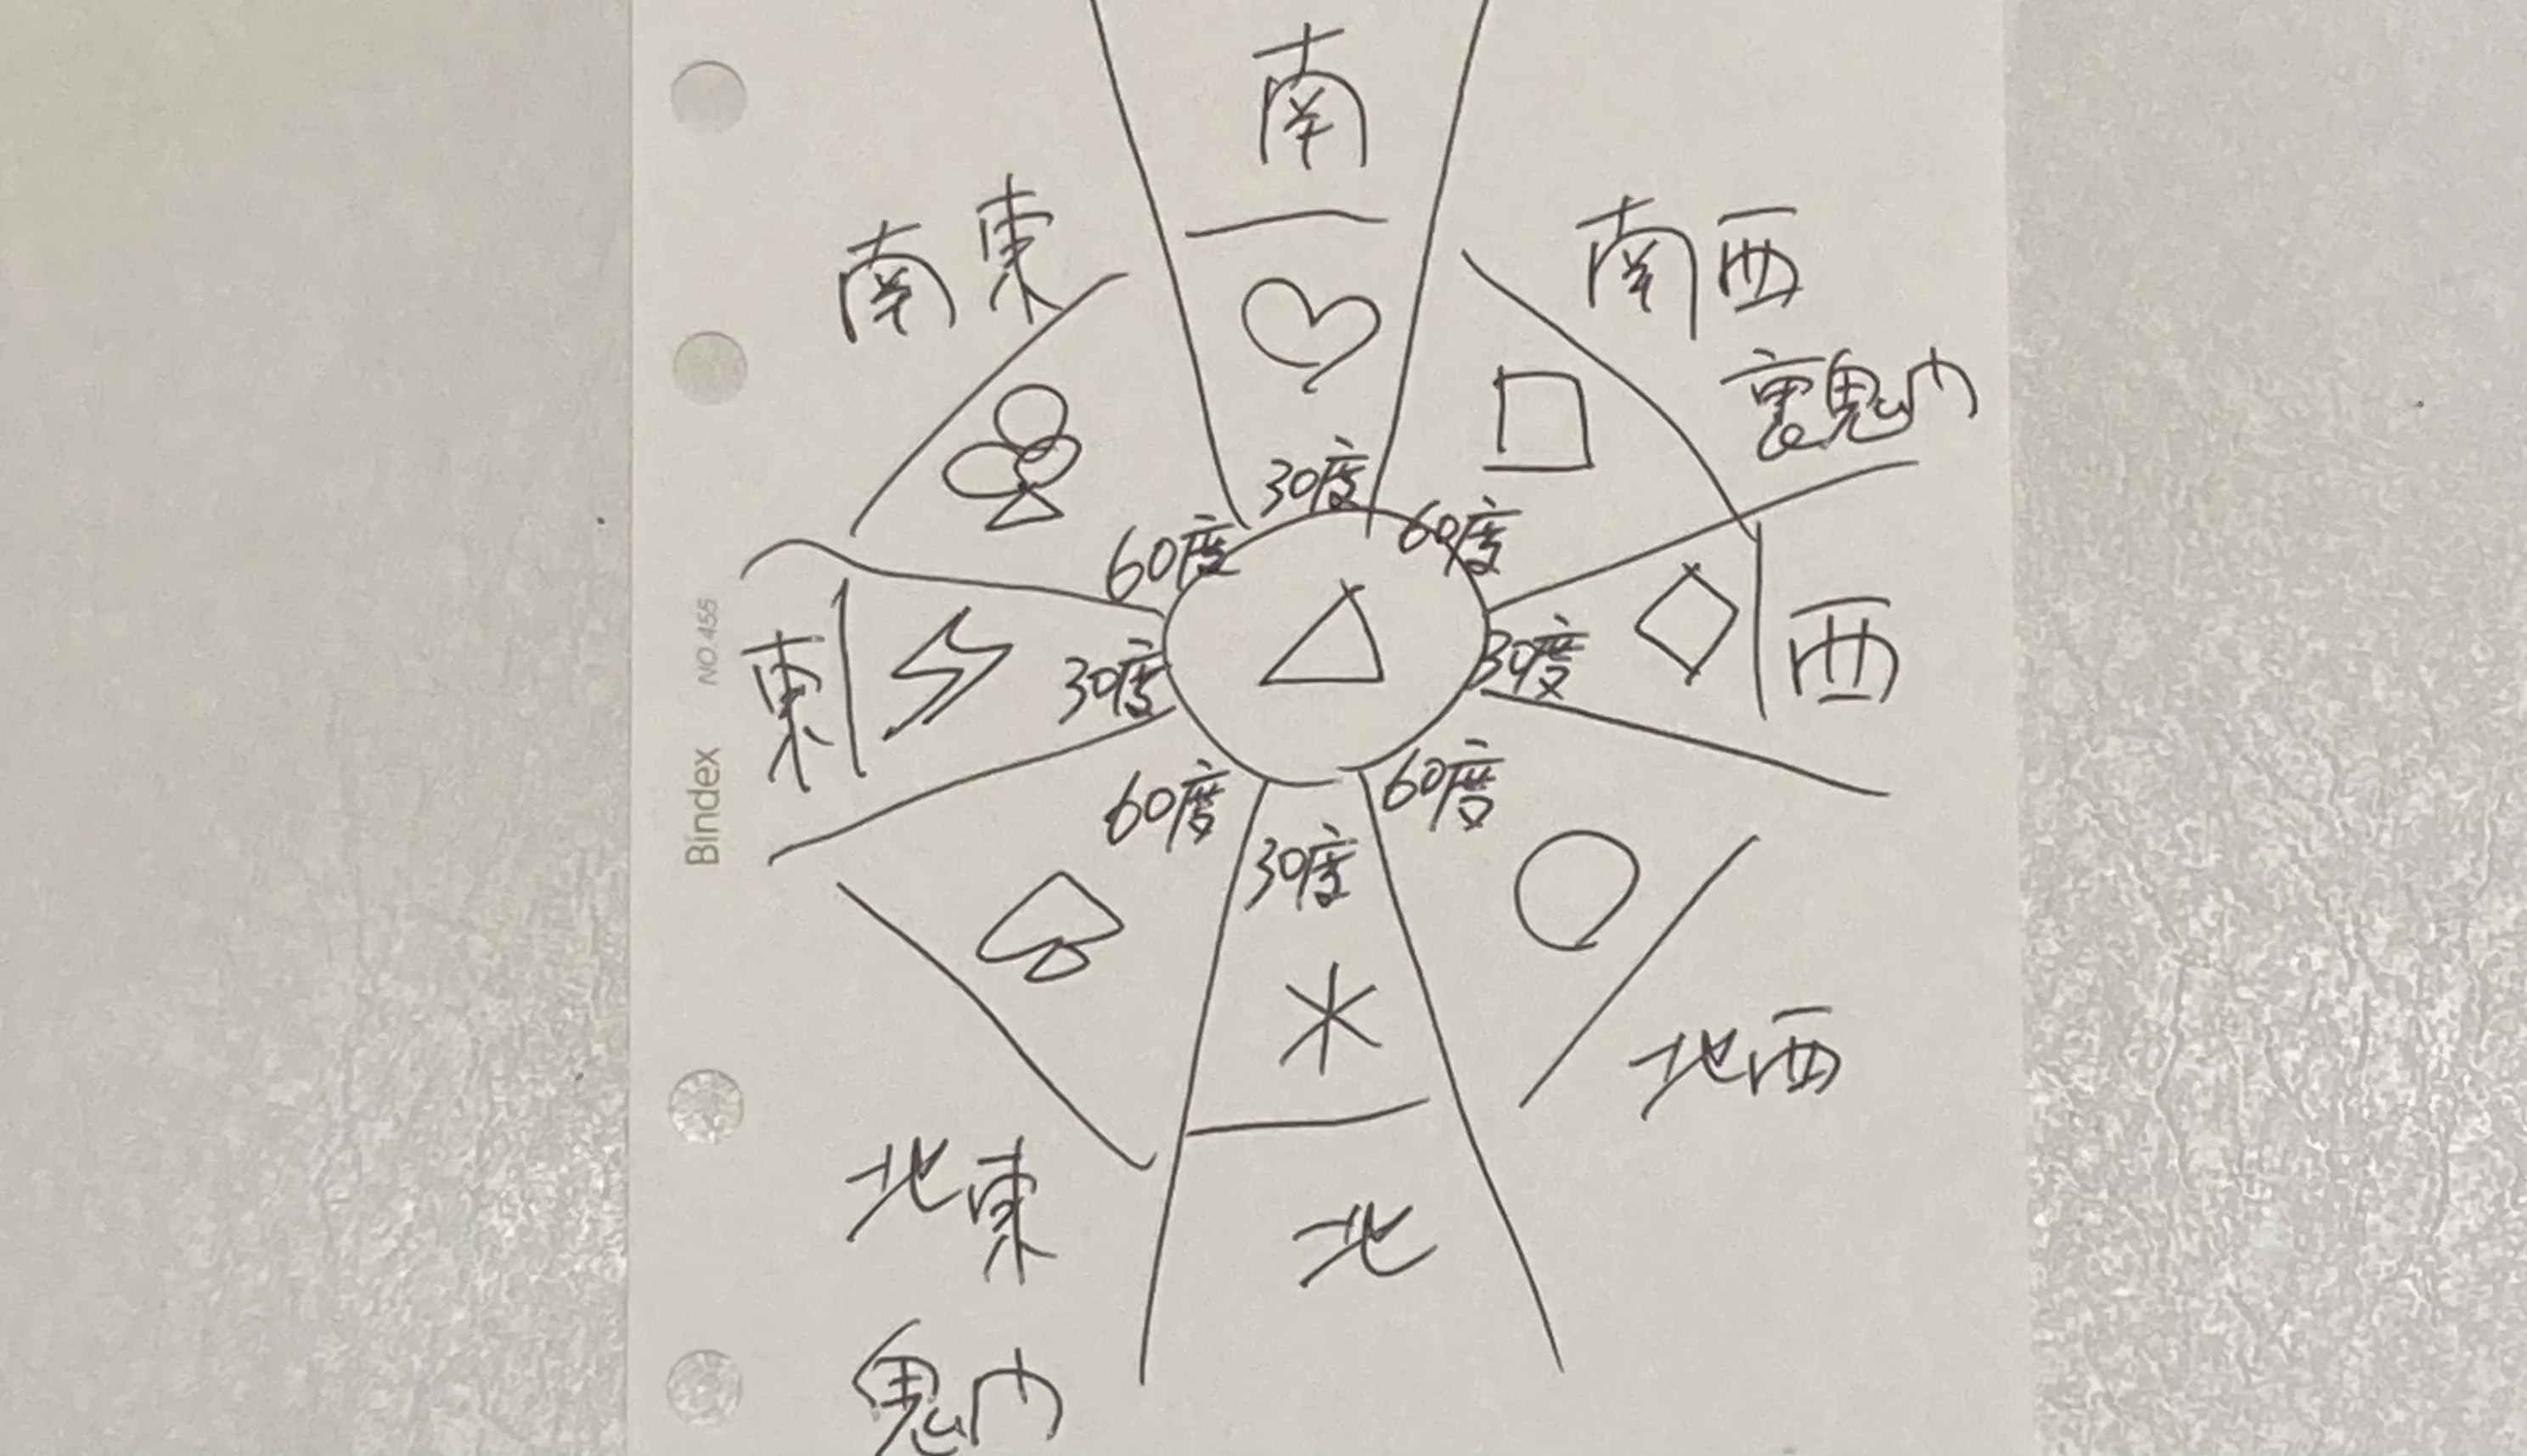 南
南東
南西
裏鬼門
30度
60度
60度
東
30度
30度
西
60度
60度
30度
北西
北東
北
鬼門
Bindex NO.455